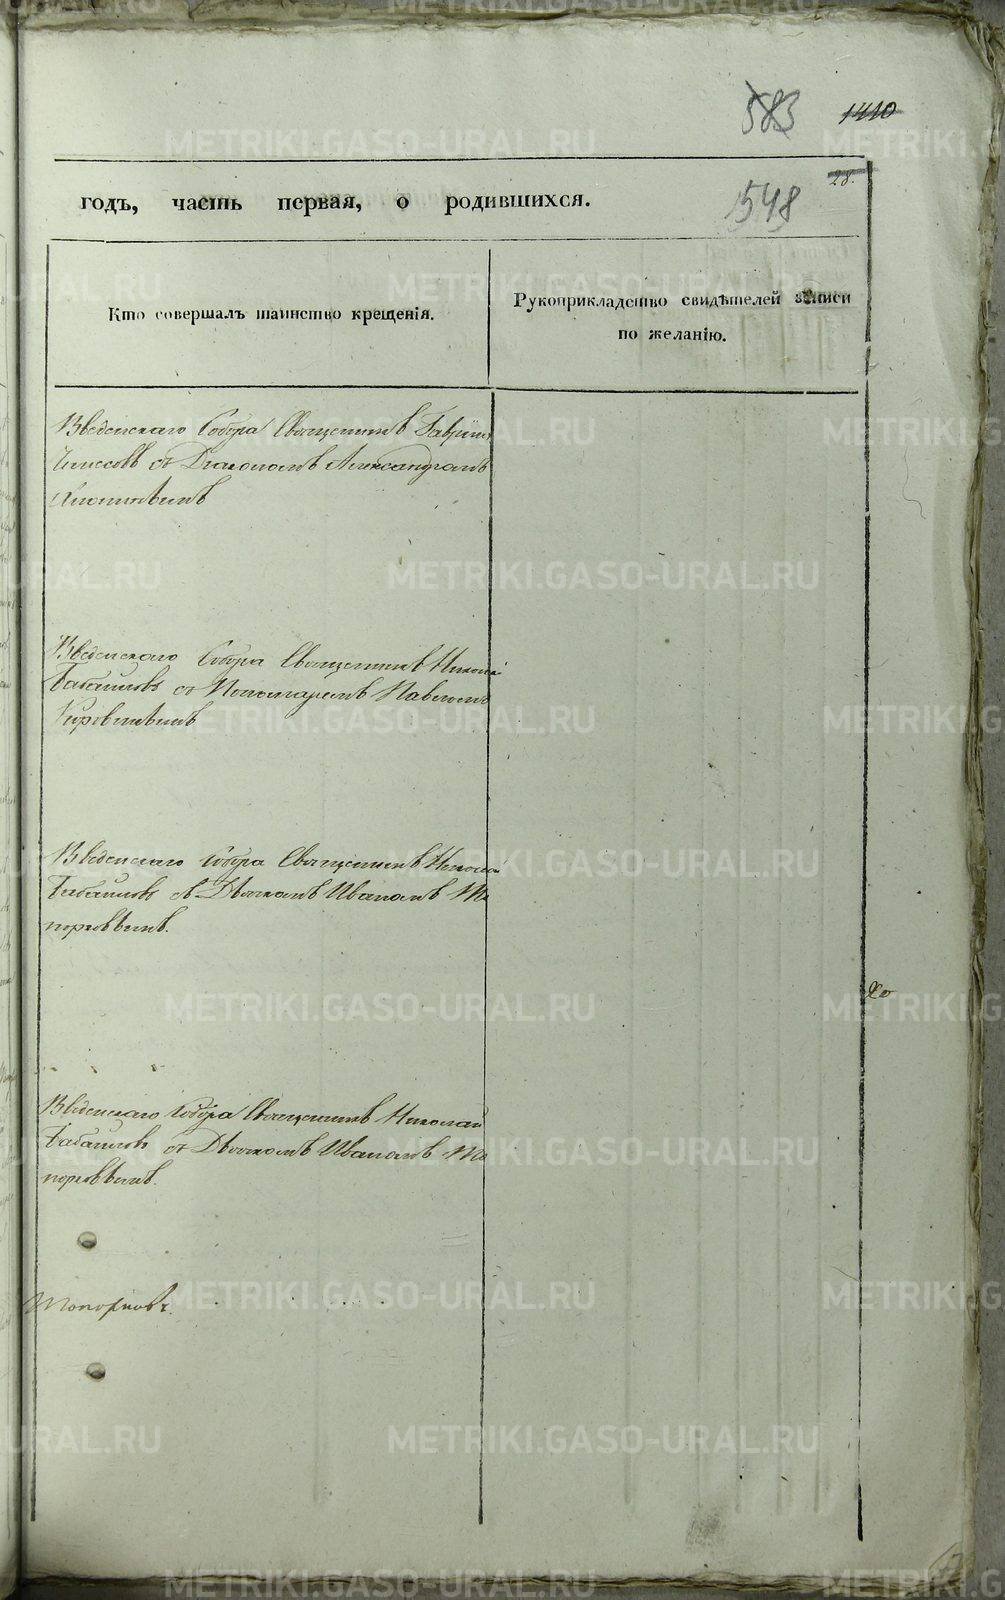 583 1410
28.
годъ, часть первая, о родившихся. 548
Кто совершалъ таинство крещенія.
Рукоприкладство свидѣтелей записи
по желанію.
Введенскаго Собора Священникъ Гавріилъ
съ Діакономъ Александромъ
Введенскаго Собора Священникъ Николай
Бабайловъ съ Пономаремъ Павломъ
Введенскаго Собора Священникъ Николай
Бабайловъ съ Дьячкомъ Иваномъ То
порковымъ.
Введенскаго Собора Священникъ Николай
Бабайловъ съ Дьячкомъ Иваномъ То
порковымъ.
Топорковъ.
METRIKI.GASO-URAL.RU